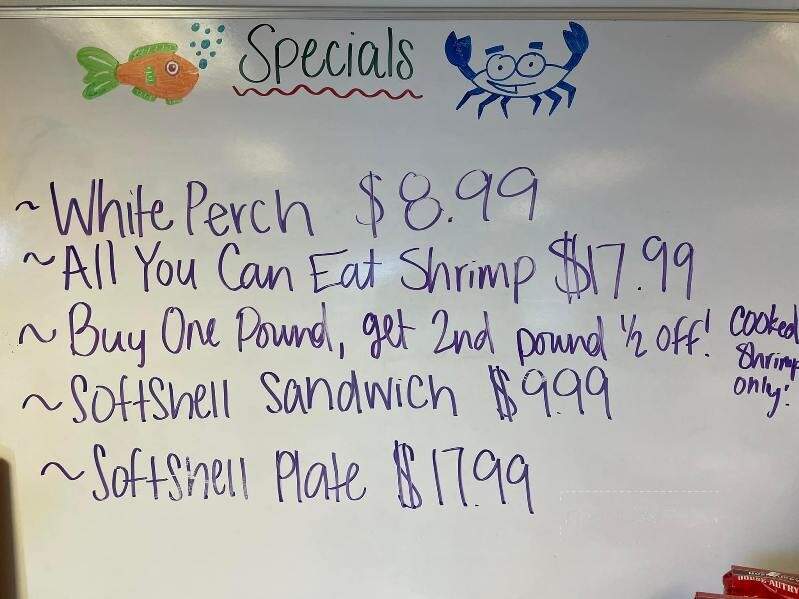 Specials
~White Perch $8.99
~All You Can Eat Shrimp $17.99
~Buy One Pound, get 2nd pound 1/2 off!
Cooked
Shrimp
only!
~Softshell Sandwich $9.99
~Softshell Plate $17.99
HOUSE AUTRY